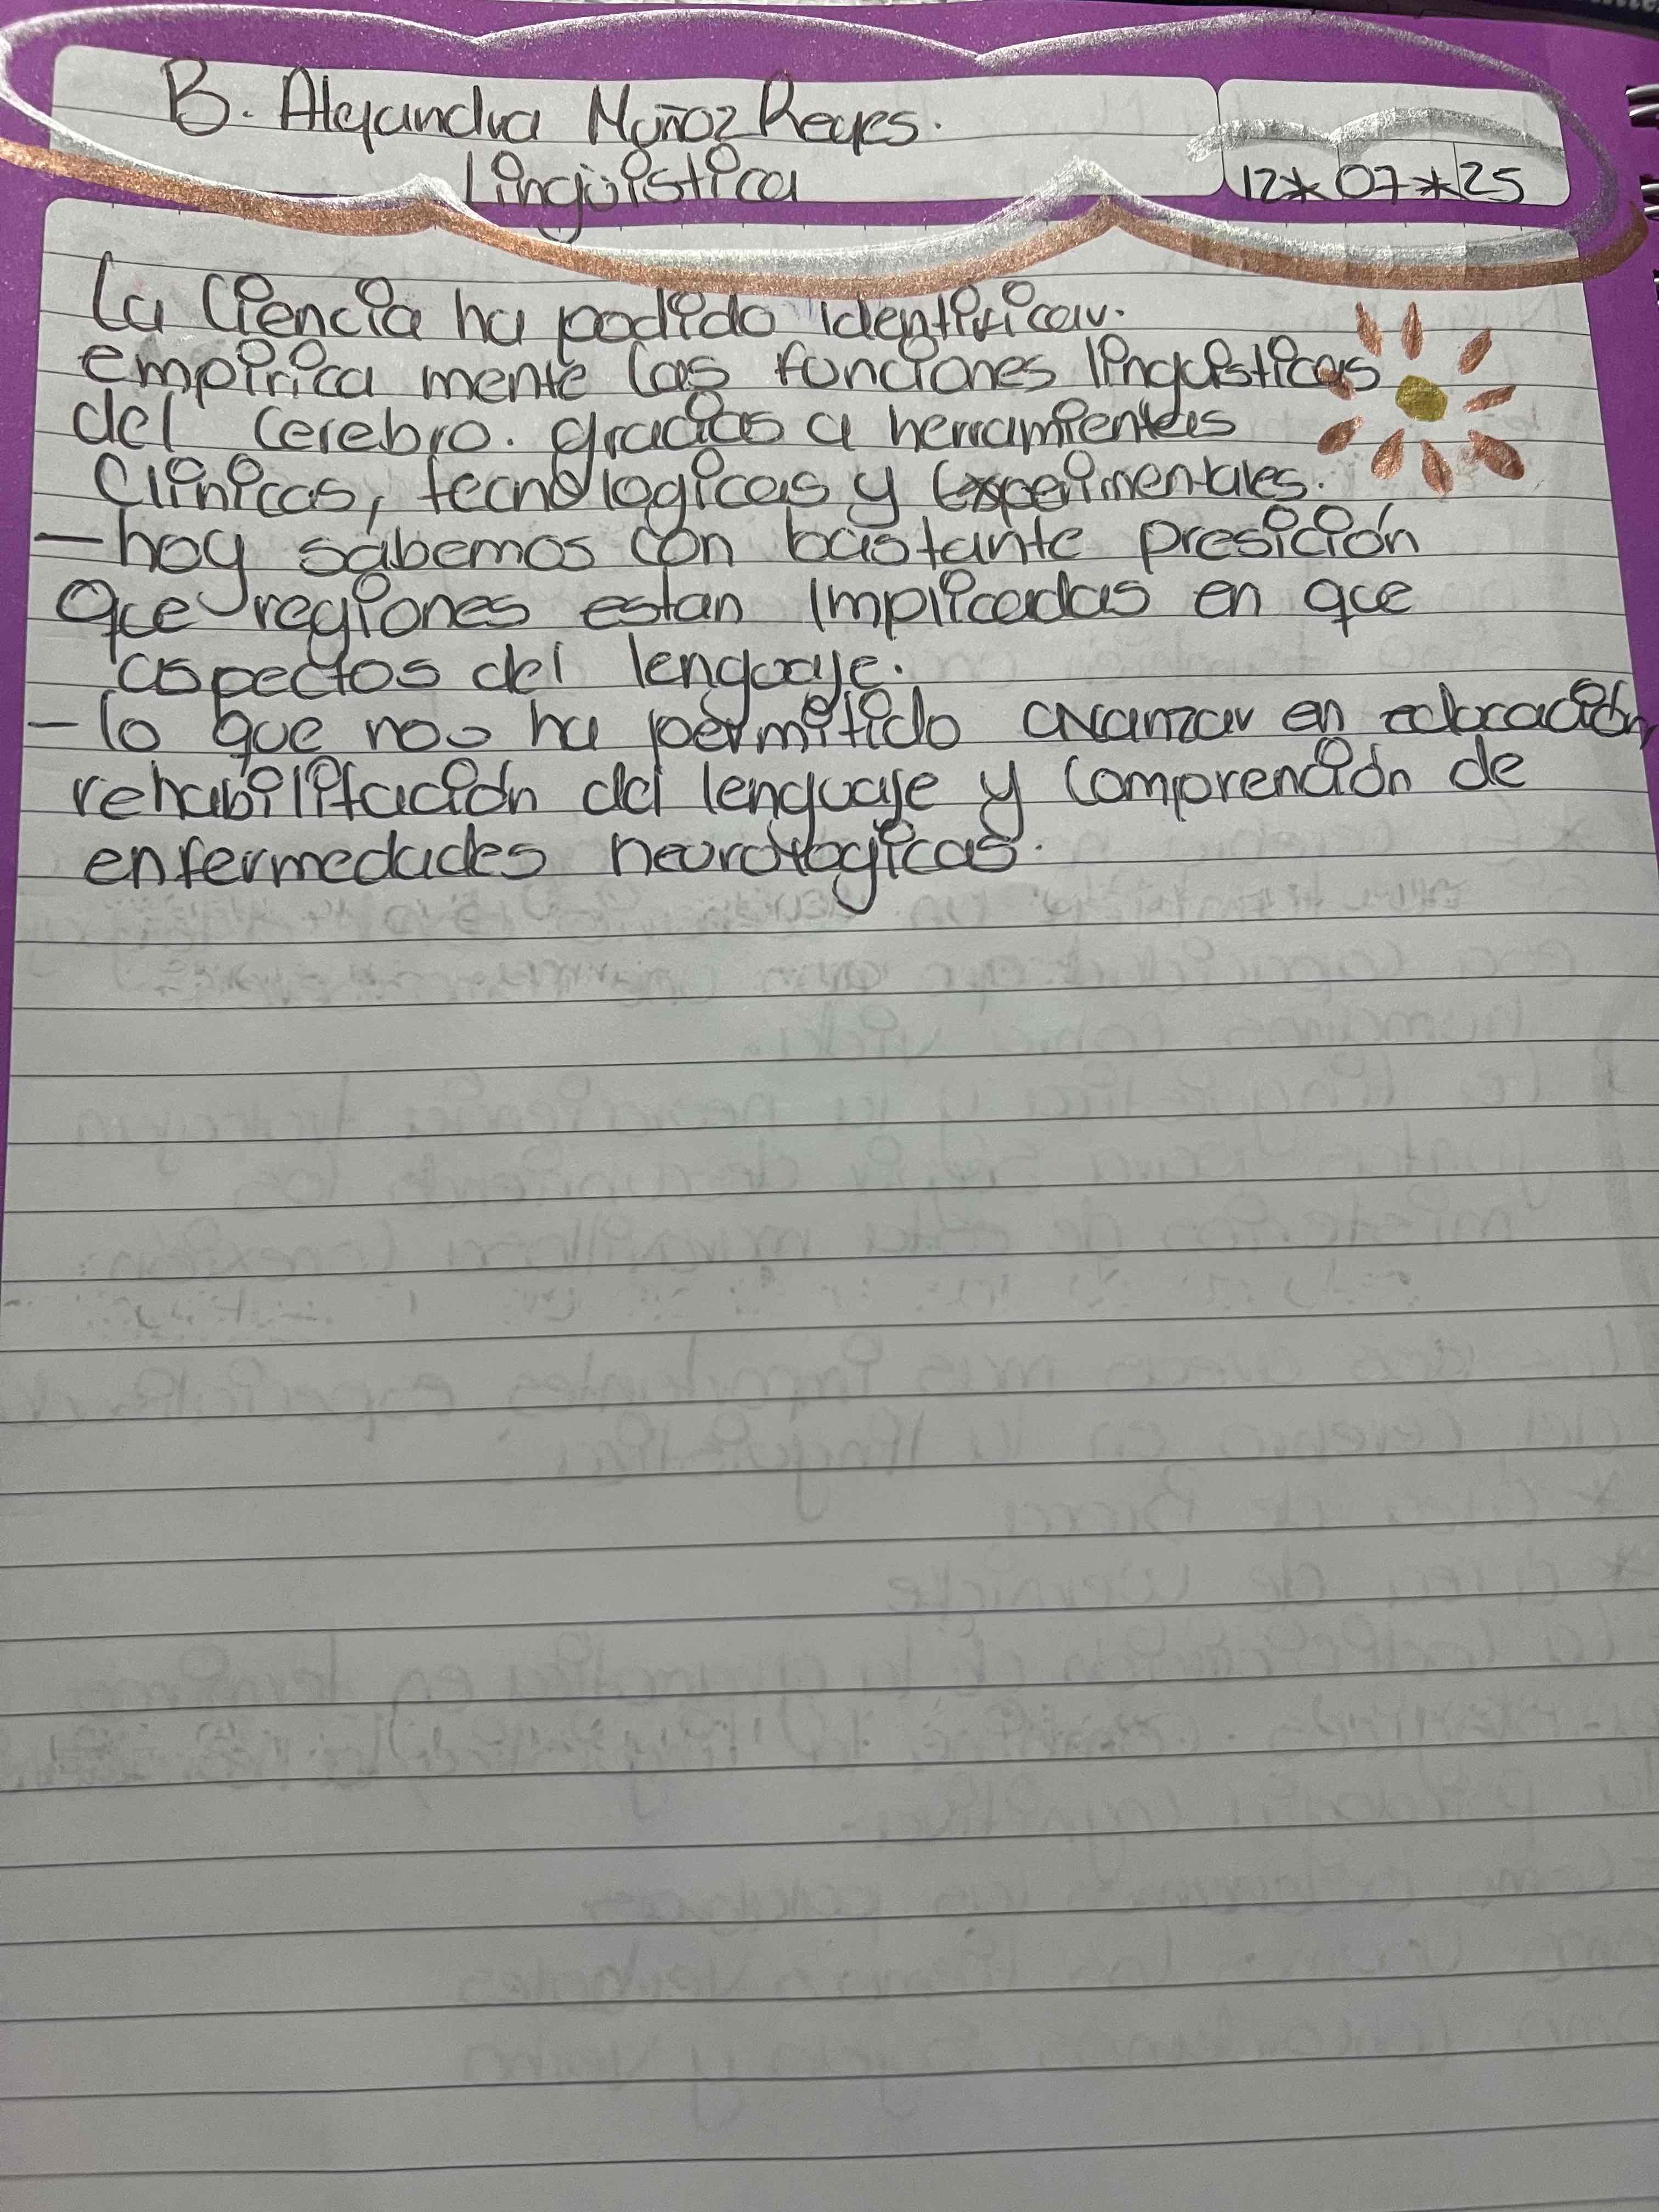 B. Alejandra Muñoz Reyes.
Lingüistica
12*07*25
La Ciencia ha podido identificar.
empirica mente las funciones linguisticas
del cerebro. gracias a herramientas
Clinicas, tecnologicas y experimentales.
- hoy sabemos con bastante presición
que regiones estan implicadas en que
aspectos del lenguaje.
- lo que nos ha permitido avanzar en educación,
rehabilitación del lenguaje y comprención de
enfermedades neurologicas.